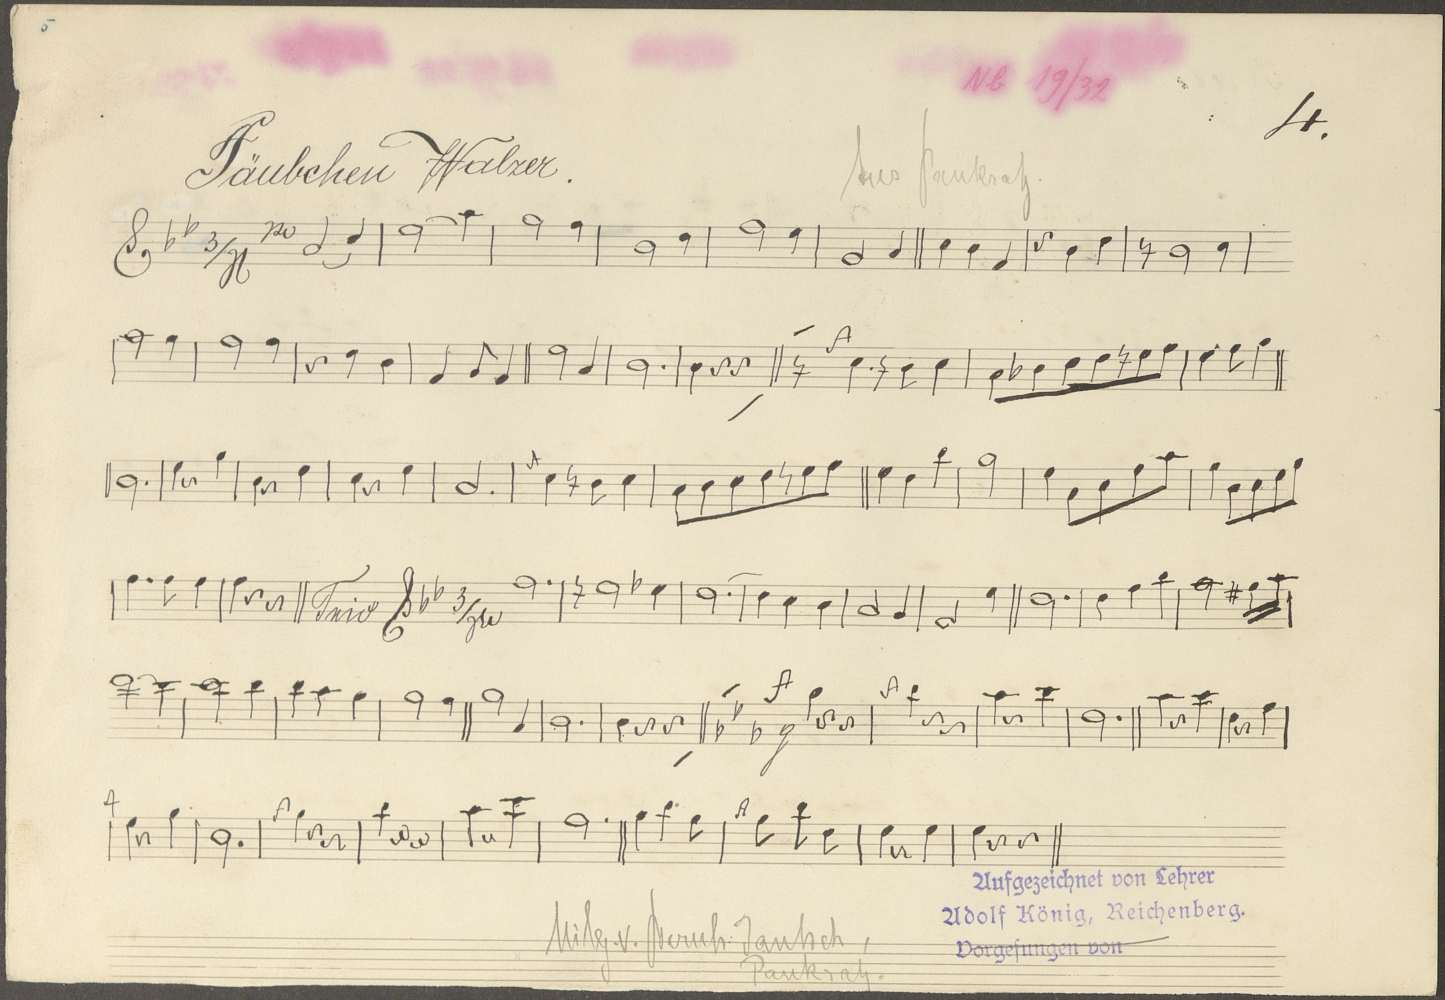 5
Nb 19/32
4.
Täubchen Walzer.
Aus Pankratz.
3/4 p
f
f
Trio 3/4
f f
f f f
Aufgezeichnet von Lehrer
Adolf König, Reichenberg.
Vorgesungen von
Mitg. v. Jantsch,
Pankratz.